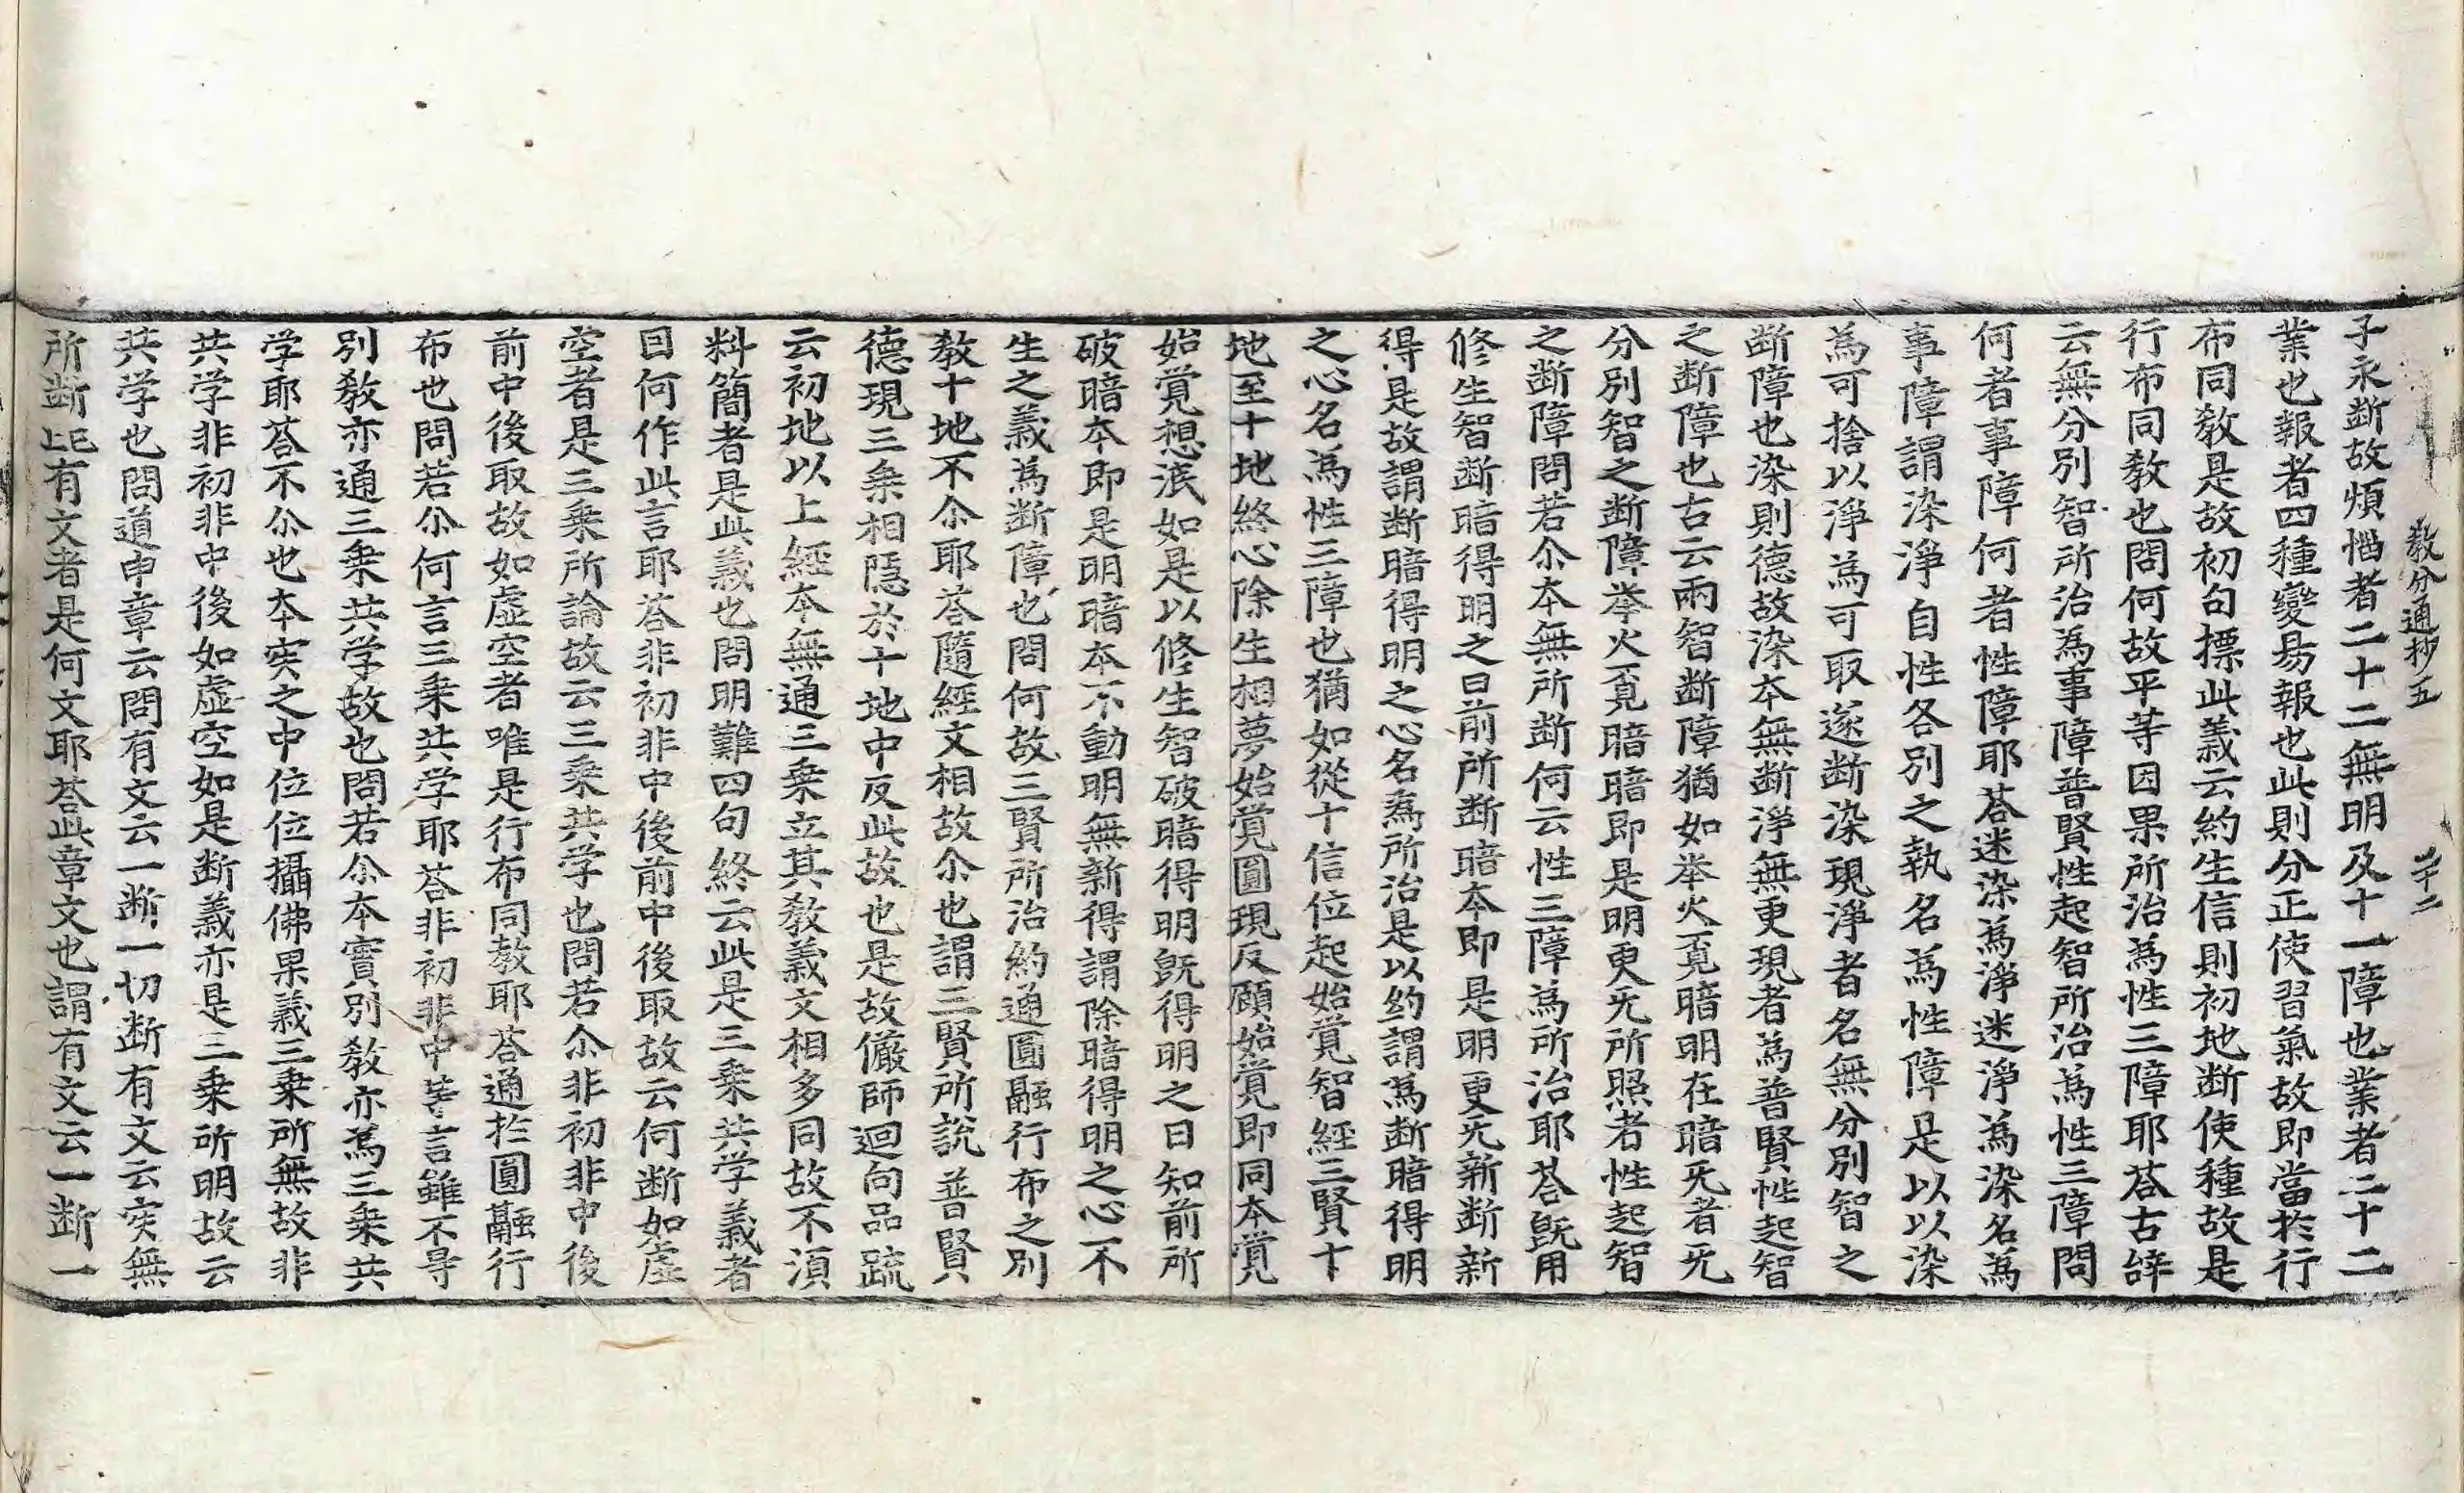 教分通抄五 二十二
子永断故煩惱者二十二無明及十一障也業者二十二
業也報者四種變易報也此則分正使習氣故即當扵行
布同教是故初句標此義云約生信則初地断使種故是
行布同教也問何故平等因果所治為性三障耶荅古辝
云無分別智所治為事障普賢性起智所治為性三障問
何者事障何者性障耶荅迷染為淨迷淨為染名為
事障謂染淨自性各別之執名為性障是以以染
為可捨以淨為可取遂断染現淨者名無分別智之
断障也染則德故染本無断淨無更現者為普賢性起智
之断障也古云兩智断障猶如举火覔暗明在暗旡者旡
分別智之断障举火覔暗暗即是明更旡所照者性起智
之断障問若尒本無所断何云性三障為所治耶荅旣用
修生智断暗得明之日前所断暗本即是明更旡新断新
得是故謂断暗得明之心名為所治是以約謂為断暗得明
之心名為性三障也猶如從十信位起始覺智經三賢十
地至十地終心除生相夢始覺圓現反顧始覺即同本覺
始覺想泯如是以修生智破暗得明旣得明之日知前所
破暗本即是明暗本不動明無新得謂除暗得明之心不
生之義為断障也問何故三賢所治約通圓融行布之別
教十地不尒耶荅隨經文相故尒也謂三賢所說普賢
德現三乗相隱於十地中反此故也是故儼師迴向品䟽
云初地以上經本無通三乗立其教義文相多同故不湏
料簡者是此義也問明難四句終云此是三乗共学義者
囙何作此言耶荅非初非中後前中後取故云何断如虛
空者是三乗所論故云三乗共学也問若尒非初非中後
前中後取故如虛空者唯是行布同教耶荅通扵圓融行
布也問若尒何言三乗共学耶荅非初非中等言雖不㝵
別教亦通三乗共学故也問若尒本實別教亦為三乗共
学耶荅不尒也本実之中位位攝佛果義三乗所無故非
共学非初非中後如虛空如是断義亦是三乗所明故云
共学也問道申章云問有文云一断一切断有文云実無
所断此有文者是何文耶荅此章文也謂有文云一断一